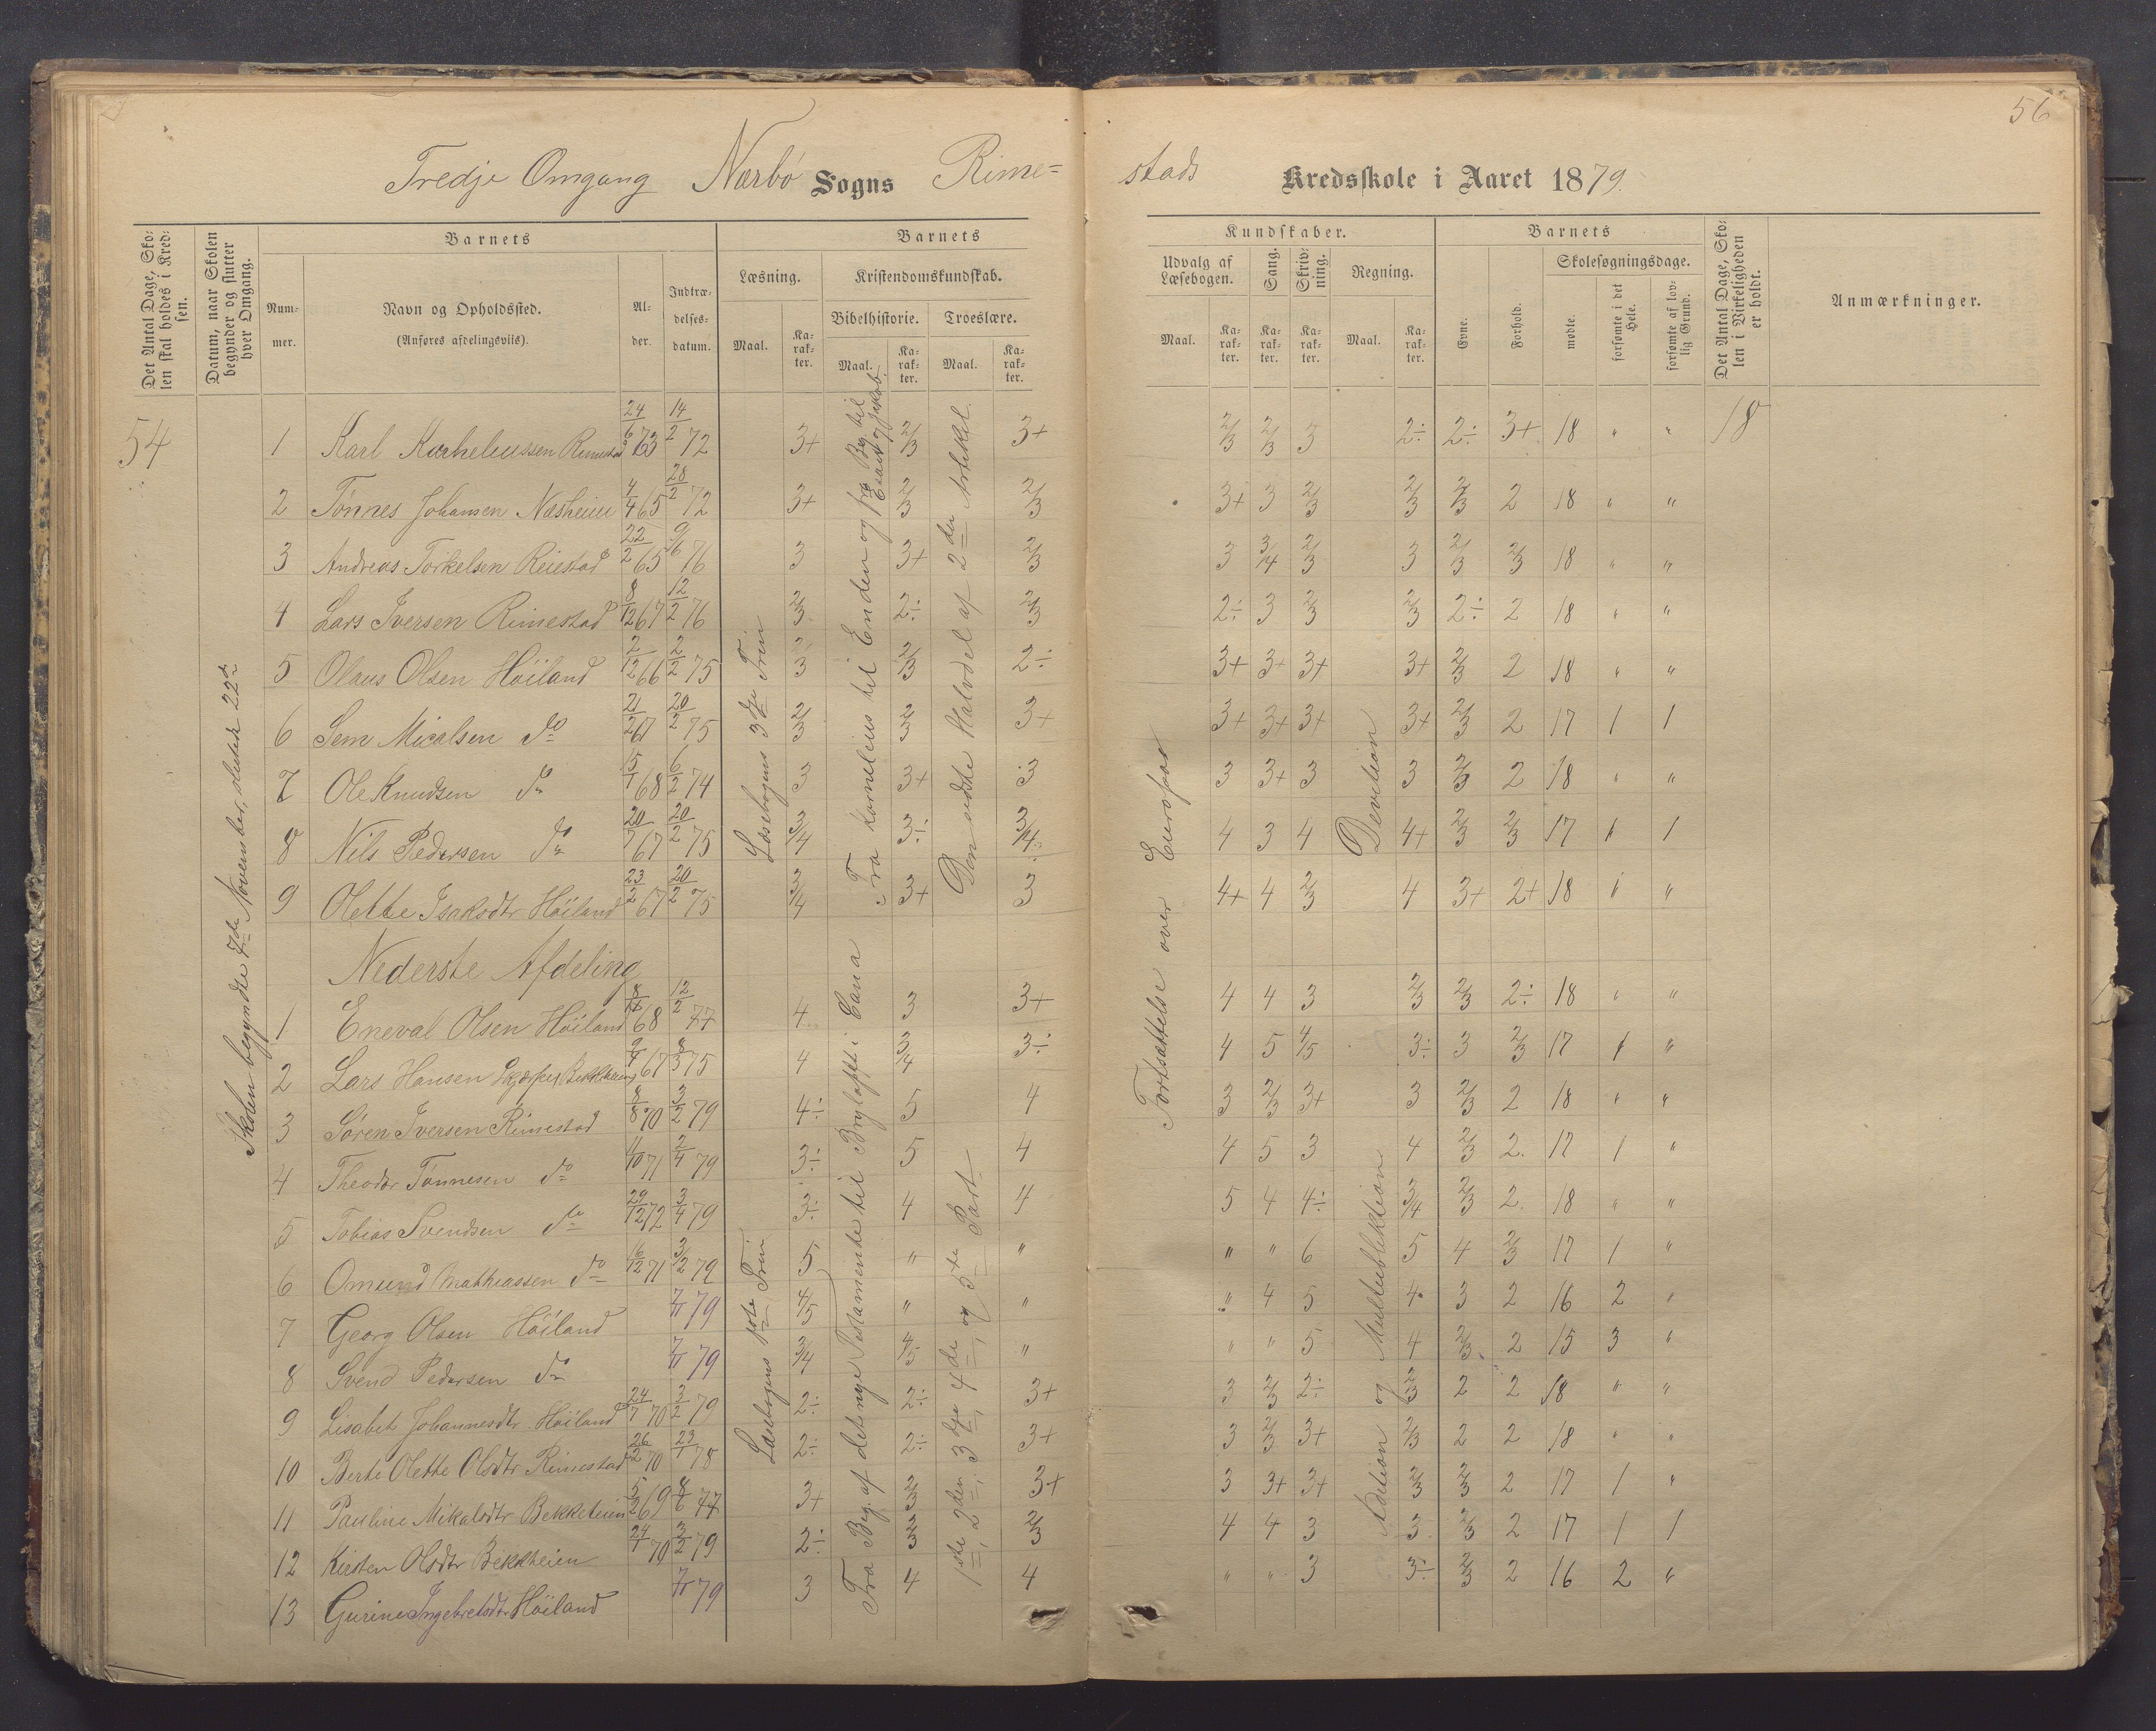 56
Tredje Omgang Nærbø Sogns Rime=
stads Kredsskole i Aaret 1879.
Det Antal Dage, Skolen skal holdes i Kredsen.
Datum, naar Skolen begynder og slutter hver Omgang.
Barnets
Nummer.
Navn og Opholdssted.
(Anføres afdelingsviis).
Alder.
Indtrædelsesdatum.
Barnets
Læsning.
Maal.
Karakter.
Kristendomskundskab.
Bibelhistorie.
Maal.
Karakter.
Troeslære.
Maal.
Karakter.
Kundskaber.
Udvalg af Læsebogen.
Maal.
Karakter.
Sang.
Karakter.
Skrivning.
Karakter.
Regning.
Maal.
Karakter.
Barnets
Evne.
Forhold.
Skolesøgningsdage.
mødte.
forsømte i det Hele.
forsømte af lovlig Grund.
Det Antal Dage, Skolen i Virkeligheden er holdt.
Anmærkninger.
54
Skolen begyndte 7de November, sluttede 22de
Læsebogens 3dje Trin
Fra Kornelius til Enden og fra Beg. til Esau og Jakob.
Den sidste Halvdel af 2den Artikel.
Fortsættelse over Europas
Devition
1 Karl 24/6 73 14/2 72 3+ 2/3 3+ 2/3 2/3 3 2÷ 2÷ 3+ 18 " " 18
2 Tønnes Johansen Næsheim 4/4 65 28/2 72 3+ 2/3 2/3 3+ 3 2/3 2/3 2/3 2 18 " "
3 Andreas Torkelsen 22/2 65 9/6 76 3 3+ 2/3 3 3/4 2/3 3 2/3 2/3 18 " "
4 Lars Iversen Rimestad 8/12 67 12/2 76 2/3 2÷ 2/3 2÷ 3 2/3 2/3 2÷ 2 18 " "
5 Olaus Olsen Höiland 2/12 66 2/2 75 2/3 2/3 2÷ 3+ 3+ 3+ 3+ 2/3 2 18 " "
6 Sem Micalsen do 21/2 67 20/2 75 2/3 2/3 3+ 3+ 3+ 3+ 3+ 2/3 2 17 1 1
7 Ole Knudsen do 15/1 68 6/2 74 3 3+ 3 3 3+ 3 3 2/3 2 18 " "
8 Nils Pedersen do 20/7 67 20/2 75 3/4 3÷ 3/4 4 3 4 4+ 2/3 2/3 17 1 1
9 Olette Isaksdtr Höiland 23/2 67 20/2 75 3/4 3+ 3 4+ 4 2/3 4 3+ 2+ 18 " "
Nederste Afdeling
Læsebogens 1ste Trin
Fra Beg. af det nye Testamente til Bryloppet i Cana
1ste, 2den, 3dje, 4de og 5te Part
Adition og Multeblektion
1 Eneval Olsen Höiland 68 12/2 77 4 3 3+ 4 4 3 2/3 2/3 2÷ 18 " "
2 Lars Hansen 67 8/3 75 4 3/4 3÷ 4 5 4/5 3÷ 3 2/3 17 1 "
3 Sören Iversen Rimestad 8/8 70 3/2 79 4÷ 5 4 3 2/3 3+ 3 2/3 2 18 " "
4 Theodor Tønnesen do 11/10 71 2/4 79 3÷ 5 4 4 5 3 4 2/3 2 17 1 "
5 Tobias Svendsen do 29/12 72 3/4 79 3÷ 4 4 5 4 4÷ 3/4 2/3 2 18 " "
6 Omund Mathiassen do 16/12 71 3/2 79 5 " " " " 6 5 4 2/3 17 1 "
7 Georg Olsen Höiland 7/11 79 4/5 " " " 4 5 4 3 2 16 2 "
8 Svend Pedersen do 7/11 79 3/4 4/5 " " " 5 4 2/3 2 15 3 "
9 Lisabet Johannesdtr. Höiland 24/7 70 3/2 79 2÷ 2÷ 3+ 3 2/3 2÷ 2/3 2 2 18 " "
10 Berte Olette Olsdtr Rimestad 26/2 70 23/1 78 2÷ 2÷ 3+ 3 2/3 3+ 2/3 2 2 18 " "
11 Pauline Mikalsdtr Bekkeheien 5/2 69 8/6 77 3+ 2/3 3+ 3 3+ 3+ 2/3 2/3 2 17 1 "
12 Kirsten Olsdtr Bekkheien 24/1 70 3/2 79 2÷ 2/3 2/3 4 4 3 3 2/3 2 17 1 1
13 Gurine Ingebretsdtr Höiland 7/11 79 3 4 4 " " 3 3÷ 2/3 2 16 2 "